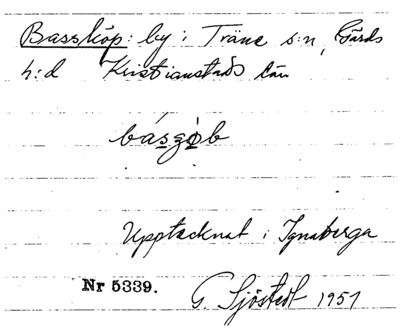 Bassköp: by i Träne s:n, Gärds
h:d Kristianstads län
básgòb
Upptecknat i Ignaberga
Nr 5339. G. Sjöstedt 1951